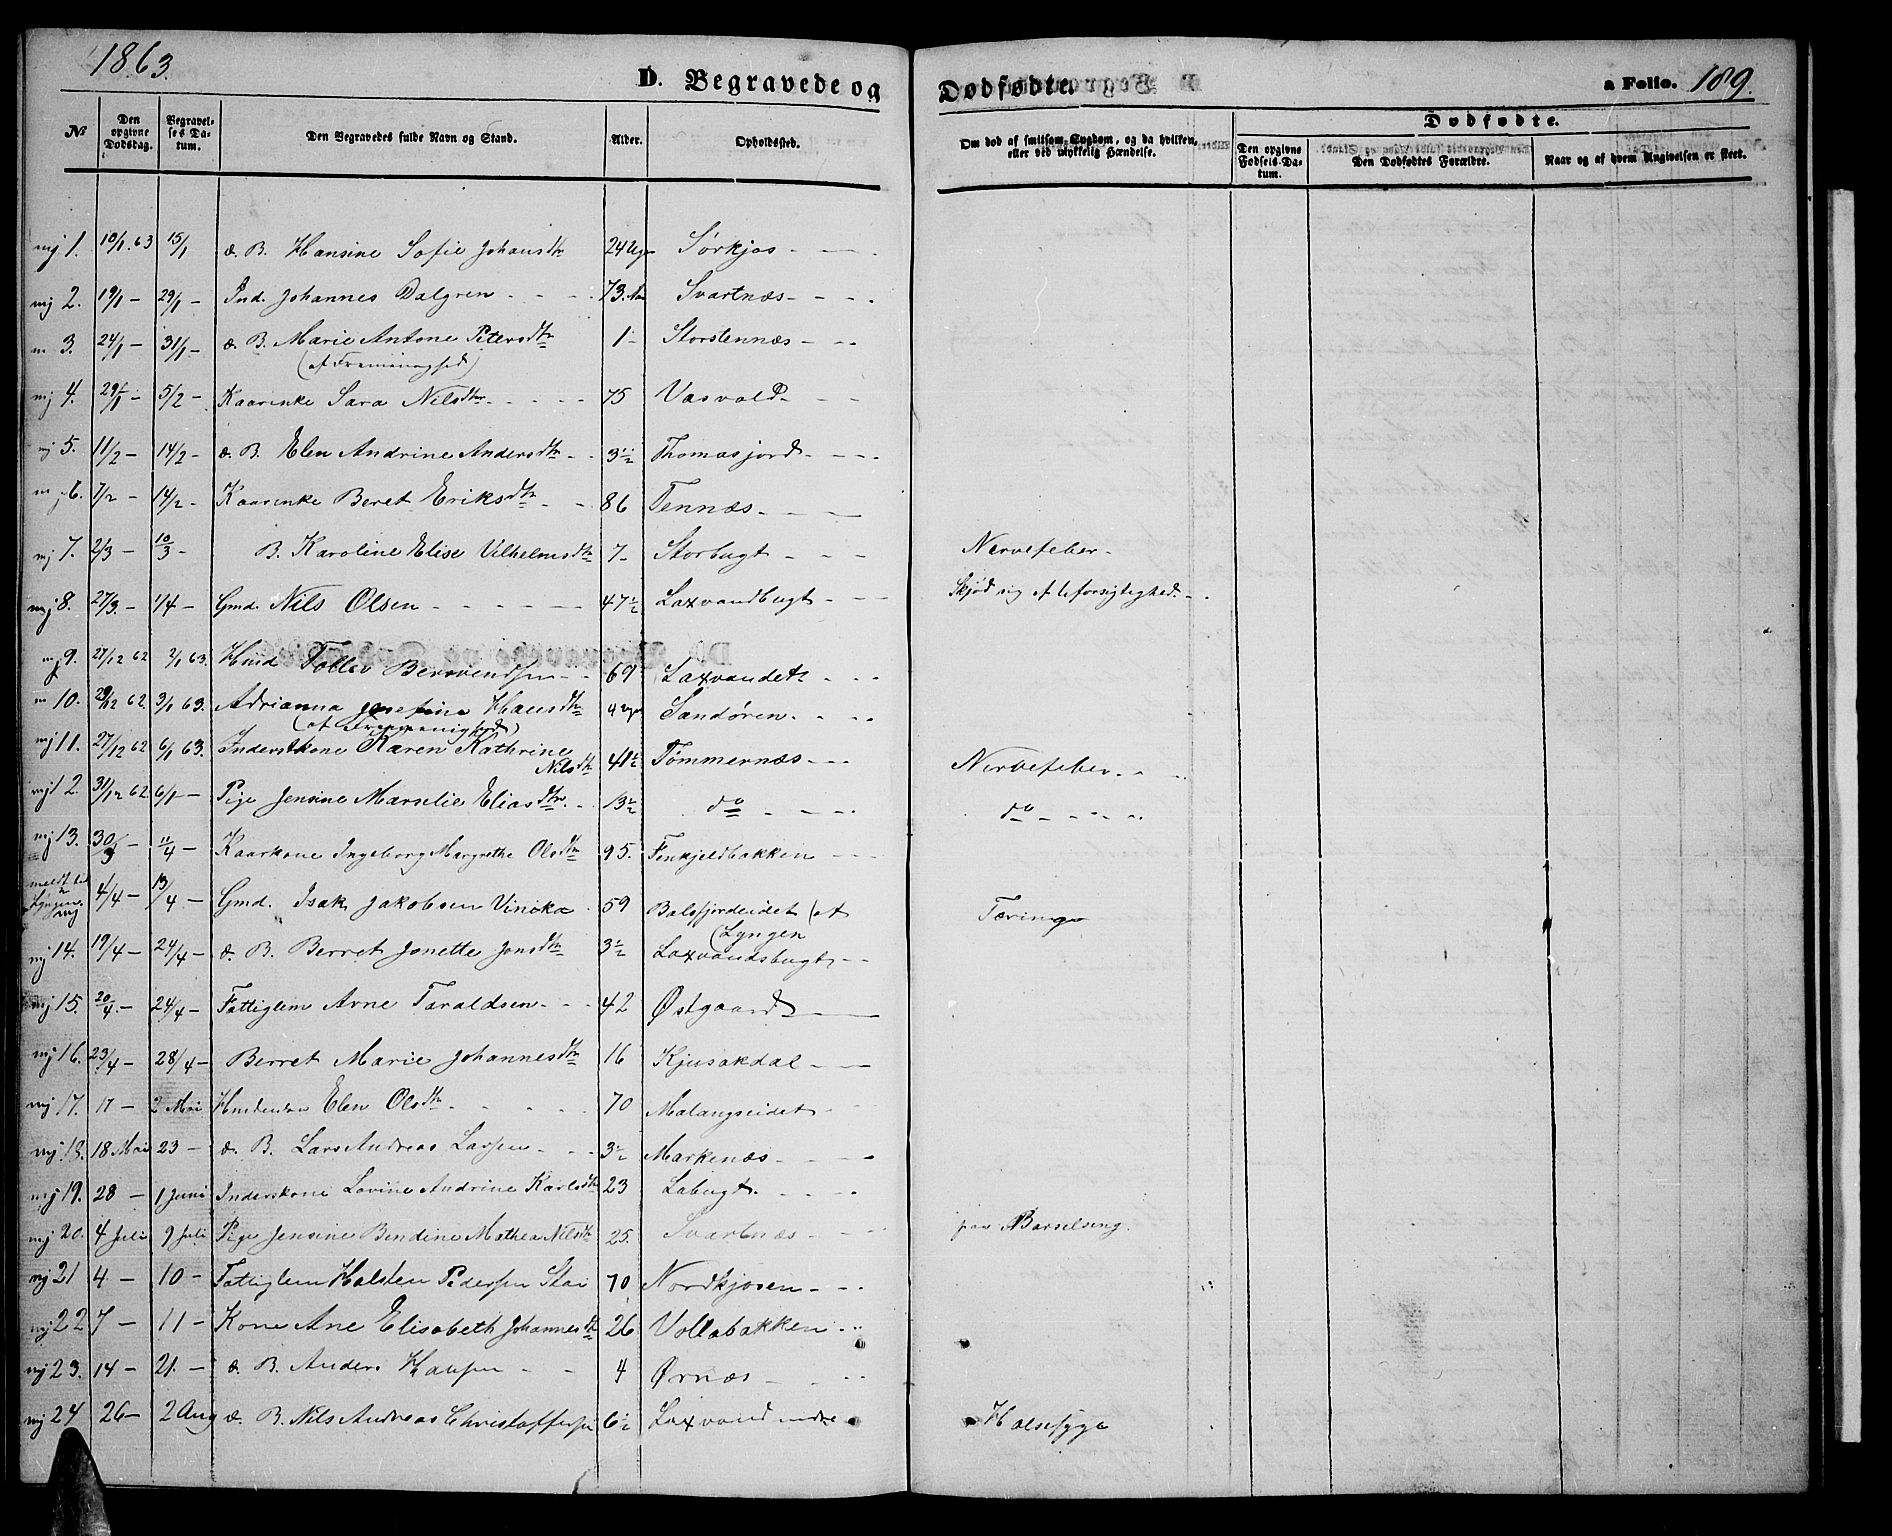 1863.
D. Begravede og
Dødfødte.
a Folio. 189.
No
Den opgivne Dødsdag.
Begravelses Datum.
Den Begravedes fulde Navn og Stand.
Alder.
Opholdssted.
Om død af smitsom Sygdom, og da hvilken, eller ved ulykkelig Hændelse.
Dødfødte.
Den opgivne Fødsels-Datum.
Den Dødfødtes Forældre.
Naar og af hvem Angivelsen er skeet.
mj 1. 10/1. 63 15/1 æ. B. Hansine Sofie Johansdtr 24 Uger Sørkjos
mj 2. 19/1 - 29/1 - Ind. Johannes Dalgren 73 Svartnæs
m 3. 24/1 - 31/1 - æ. B. Marie Antone Petersdtr 1 Storstennæs
mj 4. 29/1 - 5/2 - Kaarenke Sara Nilsdtr 75 Vasvold
mj 5. 11/2 - 14/2 - æ. B. Elen Andrine Andersdtr 3 1/2 Thomasjord
mj 6. 7/2 - 14/2 - Kaarenke Beret Eriksdtr 86 Tennæs
mj 7. 2/3 - 10/3 - B. Karoline Elise Vilhelmsdtr 7 Storbugt Nervefeber
mj 8. 27/3 - 1/4 - Gmd. Nils Olsen 47 1/2 Laxvandbugt Skjød sig af Uforsigtighed
mj 9. 27/12 62 2/1 63. Hmd Tollev Bersvendsen 69 Laxvandet
m 10. 29/12 62. 3/1 63. Adrianna Josefine Hansdtr 4 Sandøren
mj 11. 27/12 62 6/1 63. Inderstkone Karen Kathrine
Nilsdtr 41 1/2 Tømmernæs Nervefeber
mj 12. 31/12 62. 6/1 - Pige Jensine Marselie Eliasdtr 13 1/2 do do
mj 13. 30/3 - 11/4 - Kaarkone Ingeborg Margrethe Olsdtr 95. Fenkjeldbakken
meldt til Lyngen mj 4/4 - 13/4 - Gmd. Isak Jakobsen Vinika 59 Balsfjordeidet (af Lyngen Tæring
mj 14. 19/4 - 24/4 - æ. B. Berret Jonette Jonsdtr 3 1/2 Laxvandsbugt
mj 15. 20/4 - 24/4 - Fattiglem Arne Taraldsen 42 Østgaard
mj 16. 23/4 - 28/4 - Berret Marie Johannesdtr 16 Kjusakdal
mj 17. 17 - 2 Mai Elen Olsdtr 70 Malangseidet
mj 18. 18 Mai 23 - æ. B. Lars Andreas Larsen 3 1/2 Markenæs
mj 19. 28 - 1 Juni Inderskone Lovine Andrine Karlsdtr 23 Labugt
mj 20. 4 Juli 9 Juli Pige Jensine Bendine Mathea Nilsdtr 25. Svartnæs paa Barselseng.
mj 21 4 - 10 - Fattiglem Halsten Pedersen Stai 70 Nordkjosen
mj 22 7 - 11 - Kone Ane Elisabeth Johannesdtr 26 Vollabakken
mj 23. 14 - 21. - æ. B. Anders Hansen 4 Ørnæs
mj 24 26 - 2 Aug æ. B. Nils Andreas Christoffersen 6 1/2 Laxvand indre Halssyge